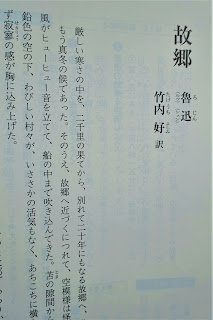 故郷
魯迅
竹内 好 訳
厳しい寒さの中を、二千里の果てから、別れて二十年にもなる故郷へ、
もう真冬の候であった。そのうえ、故郷へ近づくにつれて、空模様は怪
風がヒューヒュー音を立てて、船の中まで吹き込んできた。苫の隙間から
鉛色の空の下、わびしい村々が、いささかの活気もなく、あちこちに横
ず寂寥の感が胸に込み上げた。